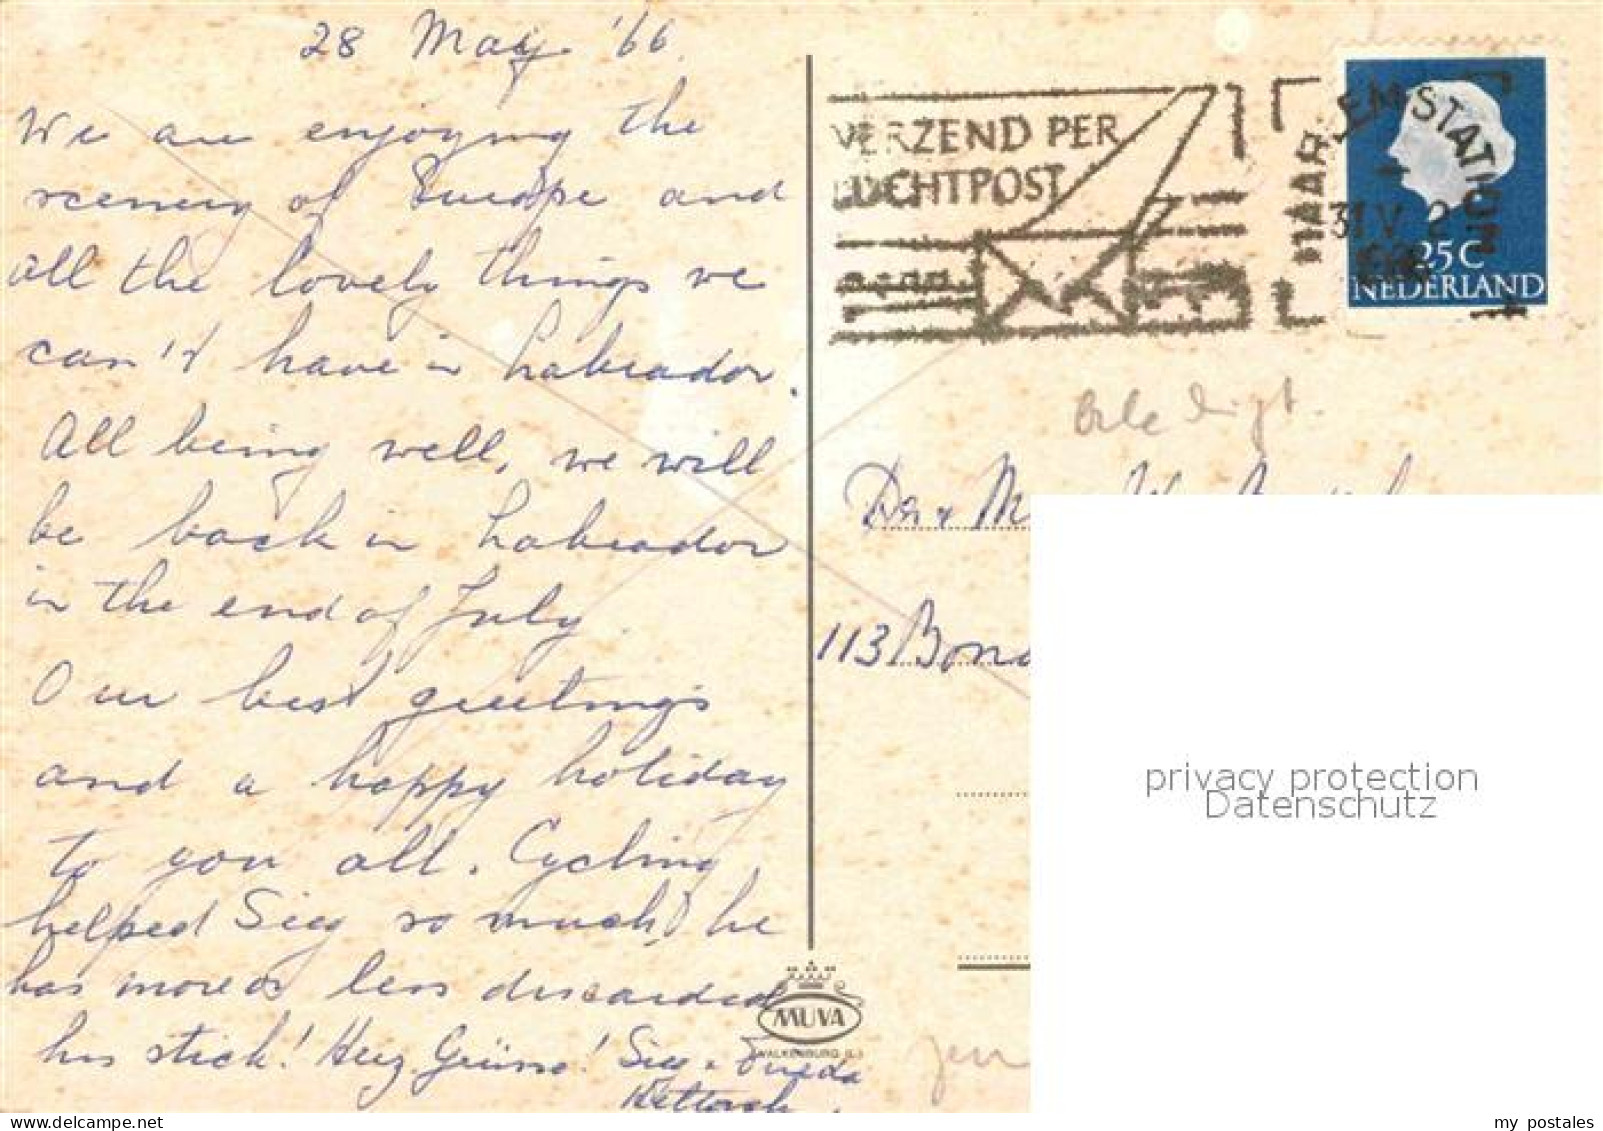 28 May '66.
We are enjoying the
scenery of Europe and
all the lovely things we
can't have in Labrador.
All being well, we will
be back in Labrador
in the end of July.
Our best greetings
and a happy holiday
to you all. Cycling
helped Sieg so much, he
has more or less discarded
his stick! Herz. Grüsse! Sieg +
VERZEND PER
LUCHTPOST
HAARLEM STATION
31 V
25 C
NEDERLAND
Dr + M
113 Bon
privacy protection
Datenschutz
MUVA
VALKENBURG (L.)
my postales